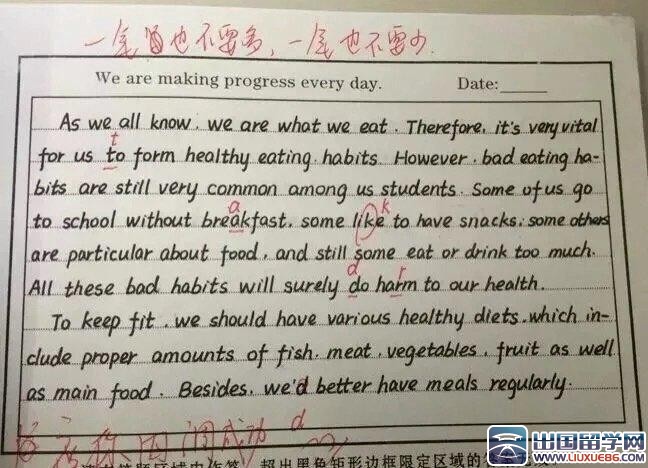 一尾也不要多，一尾也不要少.
We are making progress every day. Date:
As we all know, we are what we eat. Therefore, it's very vital
t
for us to form healthy eating habits. However, bad eating ha-
bits are still very common among us students. Some of us go
a k
to school without breakfast, some like to have snacks; some others
are particular about food, and still some eat or drink too much.
d r
All these bad habits will surely do harm to our health.
To keep fit, we should have various healthy diets, which in-
clude proper amounts of fish, meat, vegetables, fruit as well
as main food. Besides, we'd better have meals regularly.
d
成功
超出黑色矩形边框限定区域的
出国留学网
WWW.LIUXUE86.COM